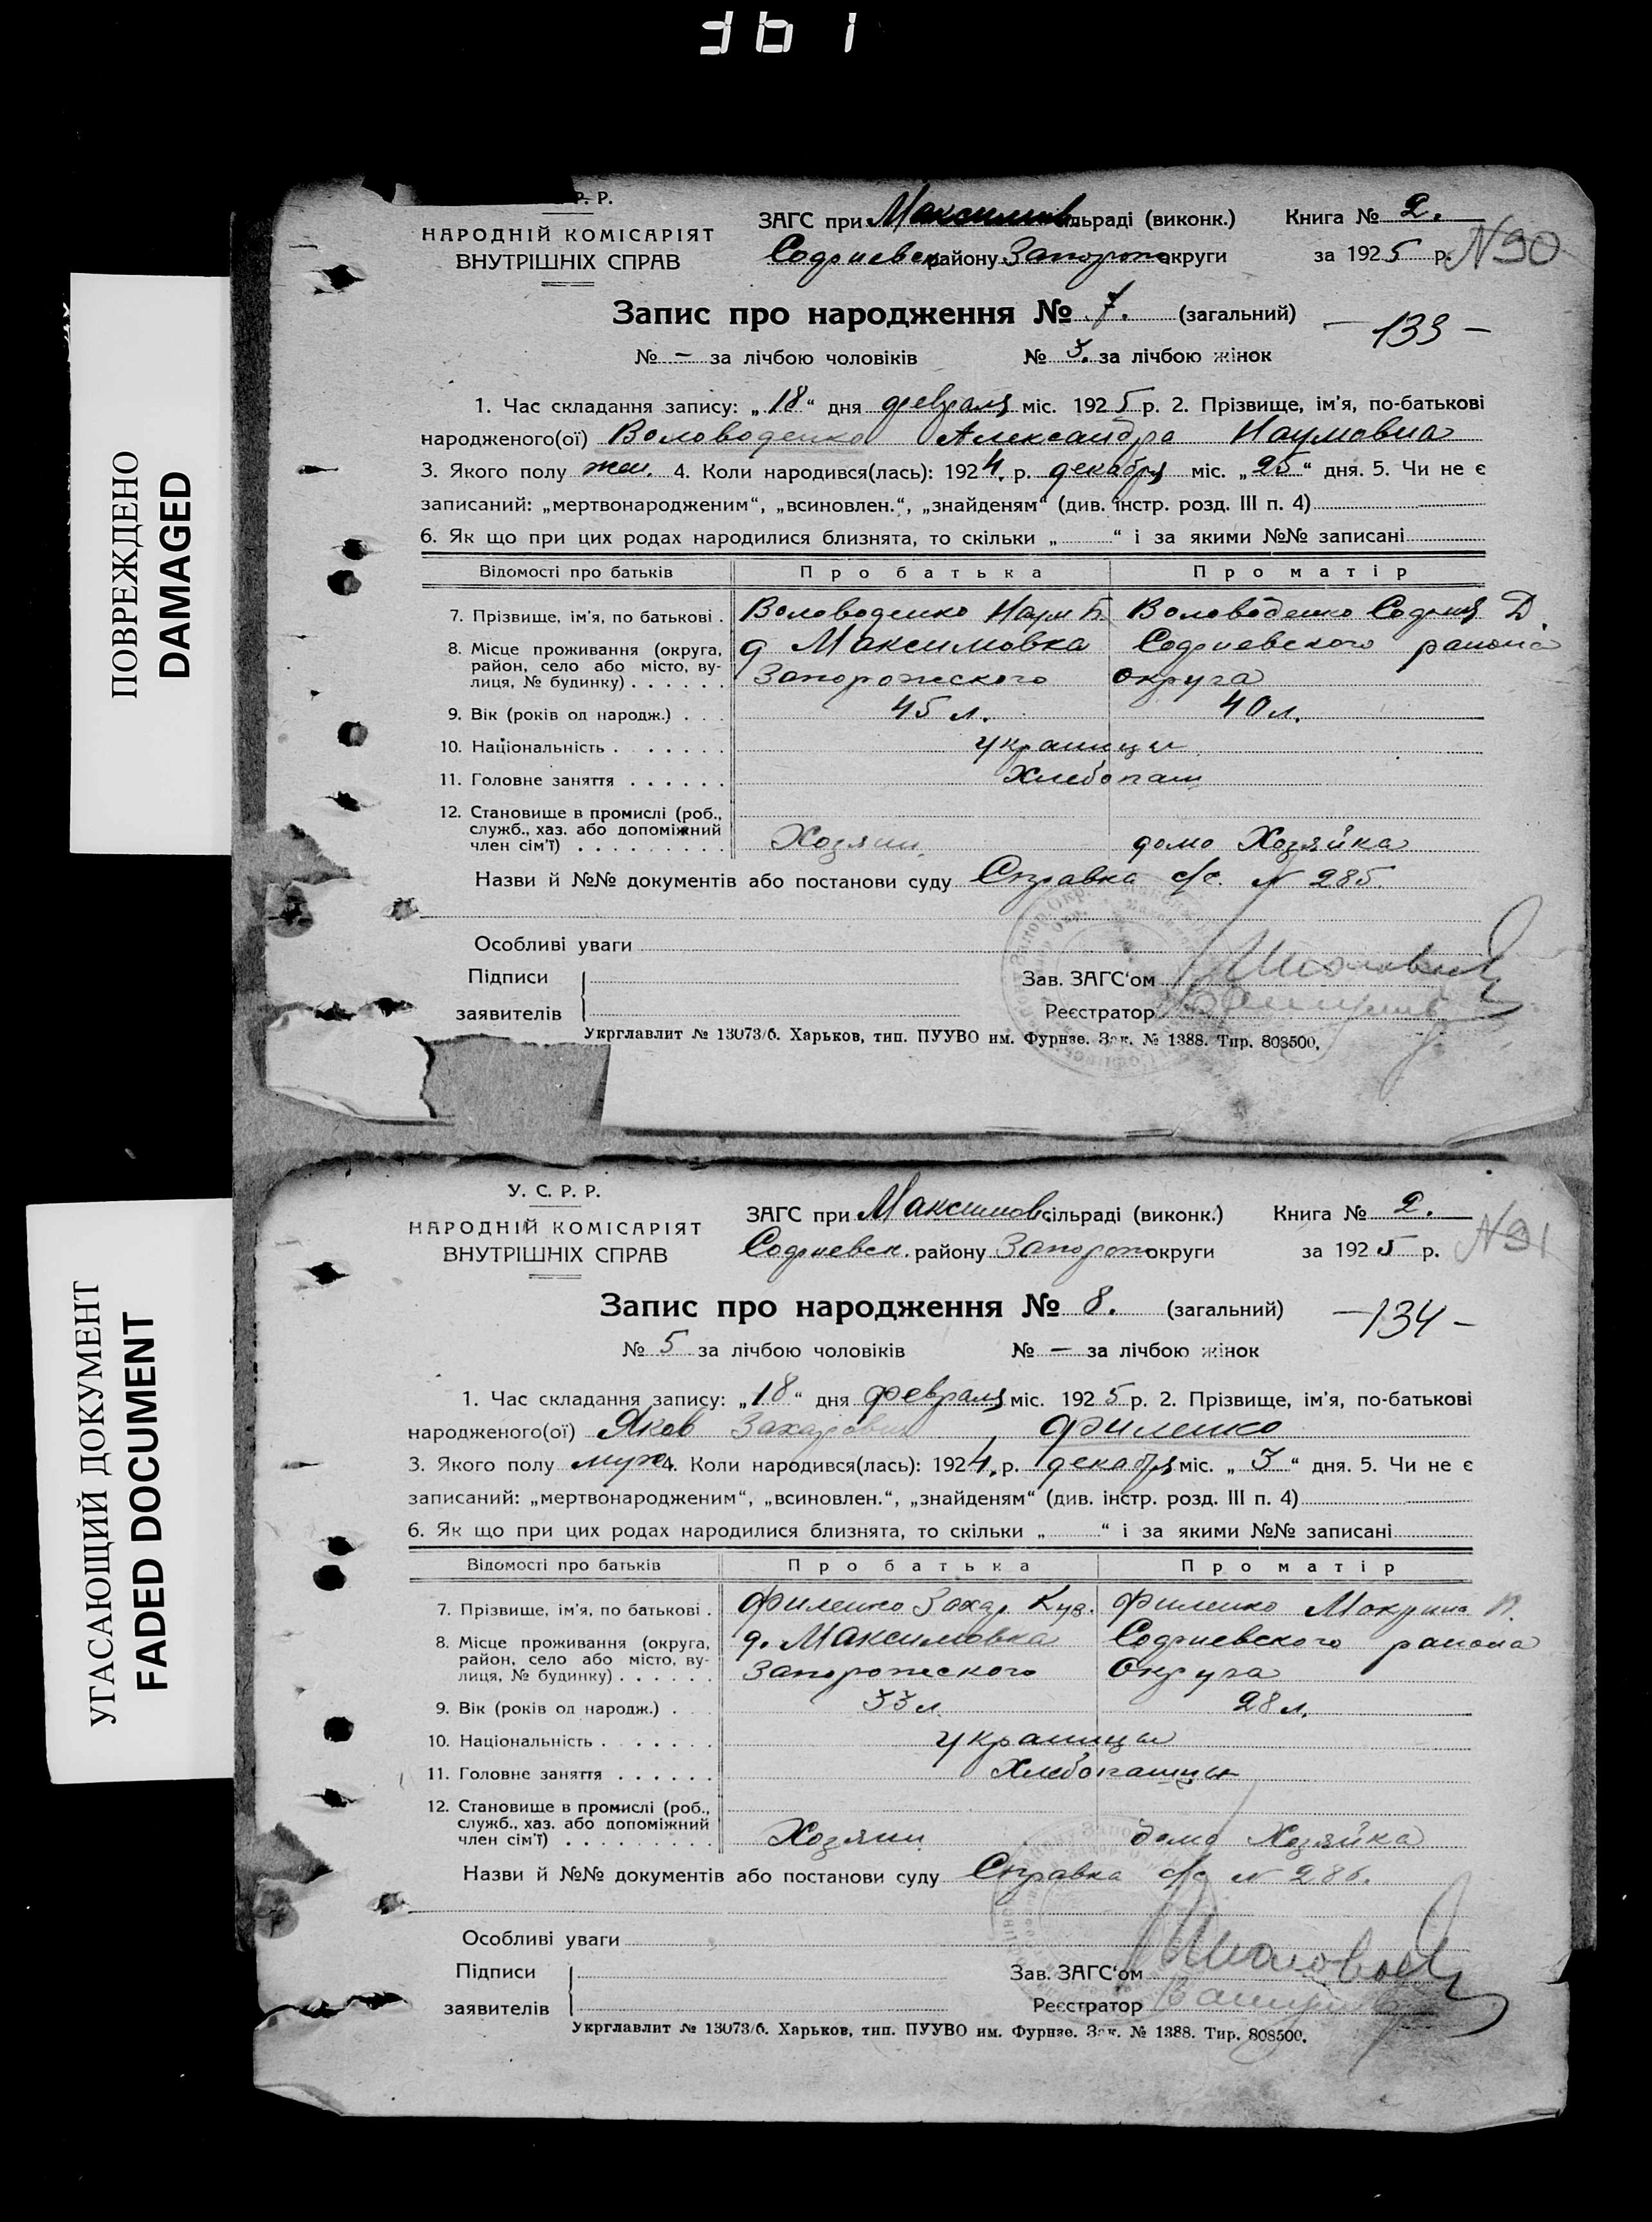 ПОВРЕЖДЕНО
DAMAGED
Р. Р.
НАРОДНІЙ КОМІСАРІЯТ
ВНУТРІШНІХ СПРАВ
ЗАГС при Максимов. сільраді (виконк.) Книга № 2.
Софиевск. району Запорож. округи за 1925 р. N90
Запис про народження № 7. (загальний) – 133 –
№ – за лічбою чоловіків № 3. за лічбою жінок
1. Час складання запису: „18“ дня февраля міс. 1925 р. 2. Прізвище, ім’я, по-батькові
народженого(ої) Воловоденко Александра Наумовна
3. Якого полу жен. 4. Коли народився(лась): 1924. р. декабря міс. „25“ дня. 5. Чи не є
записаний: „мертвонародженим“, „всиновлен.“, „знайденям“ (див. інстр. розд. III п. 4)
6. Як що при цих родах народилися близнята, то скільки „ “ і за якими №№ записані
Відомості про батьків Про батька Про матір
7. Прізвище, ім’я, по батькові . Воловоденко Наум Б. Воловоденко София Д.
8. Місце проживання (округа, район, село або місто, вулиця, № будинку) . . . . . . д Максимовка Софиевского района
Запорожского округа
9. Вік (років од народж.) . . . 45 л. 40 л.
10. Національність . . . . . . . украинцы
11. Головне заняття . . . . . . Хлебопаш
12. Становище в промислі (роб., служб., хаз. або допоміжний член сім’ї) . . . . . . . . . Хозяин. домо Хозяйка
Назви й №№ документів або постанови суду Справка с/с. N 285.
Особливі уваги
Підписи
заявителів
Зав. ЗАГС‘ом
Реєстратор
Укрглавлит № 13073/6. Харьков, тип. ПУУВО им. Фурнзе. Зак. № 1388. Тир. 808500.
УГАСАЮЩИЙ ДОКУМЕНТ
FADED DOCUMENT
У. С. Р. Р.
НАРОДНІЙ КОМІСАРІЯТ
ВНУТРІШНІХ СПРАВ
ЗАГС при Максимов. сільраді (виконк.) Книга № 2.
Софиевск. району Запорож округи за 1925 р. N91
Запис про народження № 8. (загальний) – 134 –
№ 5 за лічбою чоловіків № – за лічбою жінок
1. Час складання запису: „18“ дня февраля міс. 1925 р. 2. Прізвище, ім’я, по-батькові
народженого(ої) Яков Захарович Филенко
3. Якого полу муж 4. Коли народився(лась): 1924. р. декабря міс. „3“ дня. 5. Чи не є
записаний: „мертвонародженим“, „всиновлен.“, „знайденям“ (див. інстр. розд. III п. 4)
6. Як що при цих родах народилися близнята, то скільки „ “ і за якими №№ записані
Відомості про батьків Про батька Про матір
7. Прізвище, ім’я, по батькові . Филенко Захар Куз. Филенко Макрина
8. Місце проживання (округа, район, село або місто, вулиця, № будинку) . . . . . . д. Максимовка Софиевского района
Запорожского Округа
9. Вік (років од народж.) . 33 л. 28 л.
10. Національність . . . . . . . украинцы
11. Головне заняття . . . . . . Хлебопашцы
12. Становище в промислі (роб., служб., хаз. або допоміжний член сім’ї) . . . . . . . . . Хозяин домо Хозяйка
Назви й №№ документів або постанови суду Справка с/с N 286.
Особливі уваги
Підписи
заявителів
Зав. ЗАГС‘ом
Реєстратор
Укрглавлит № 13073/6. Харьков, тип. ПУУВО им. Фурнзе. Зак. № 1388. Тир. 808500.